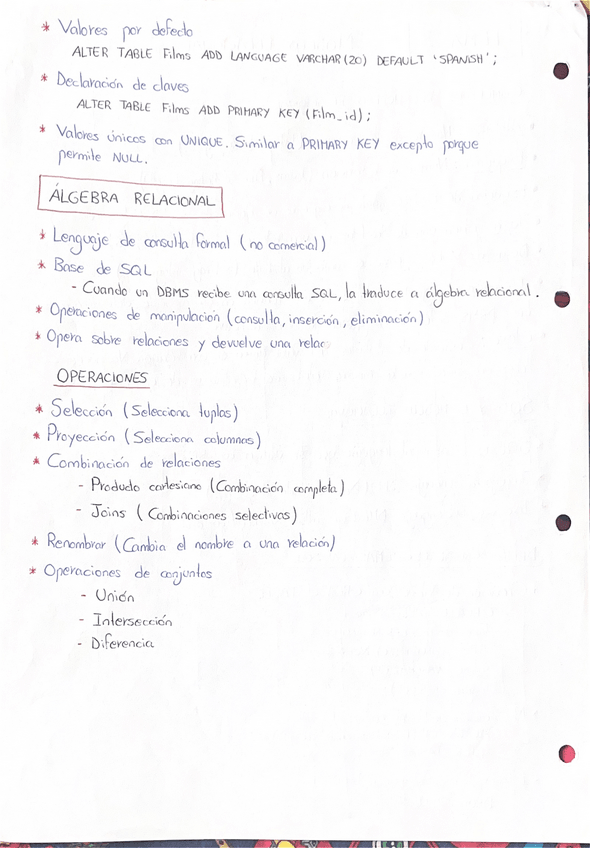 * Valores por defecto
ALTER TABLE Films ADD LANGUAGE VARCHAR(20) DEFAULT 'SPANISH';
* Declaración de claves
ALTER TABLE Films ADD PRIMARY KEY (Film_id);
* Valores únicos con UNIQUE. Similar a PRIMARY KEY excepto porque
permite NULL.
ÁLGEBRA RELACIONAL
* Lenguaje de consulta formal (no comercial)
* Base de SQL
- Cuando un DBMS recibe una consulta SQL, la traduce a álgebra relacional.
* Operaciones de manipulación (consulta, inserción, eliminación)
* Opera sobre relaciones y devuelve una relac
OPERACIONES
* Selección (Selecciona tuplas)
* Proyección (Selecciona columnas)
* Combinación de relaciones
- Producto cartesiano (Combinación completa)
- Joins (Combinaciones selectivas)
* Renombrar (Cambia el nombre a una relación)
* Operaciones de conjuntos
- Unión
- Intersección
- Diferencia